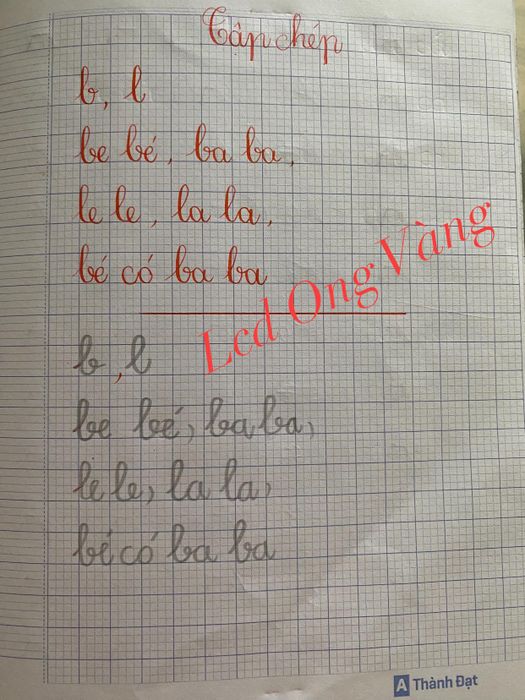 Tập chép
b, l
be bé, ba ba,
le le, la la,
bé có ba ba
Lcd Ong Vàng
b, l
be bé, ba ba,
le le, la la,
bé có ba ba
A Thành Đạt